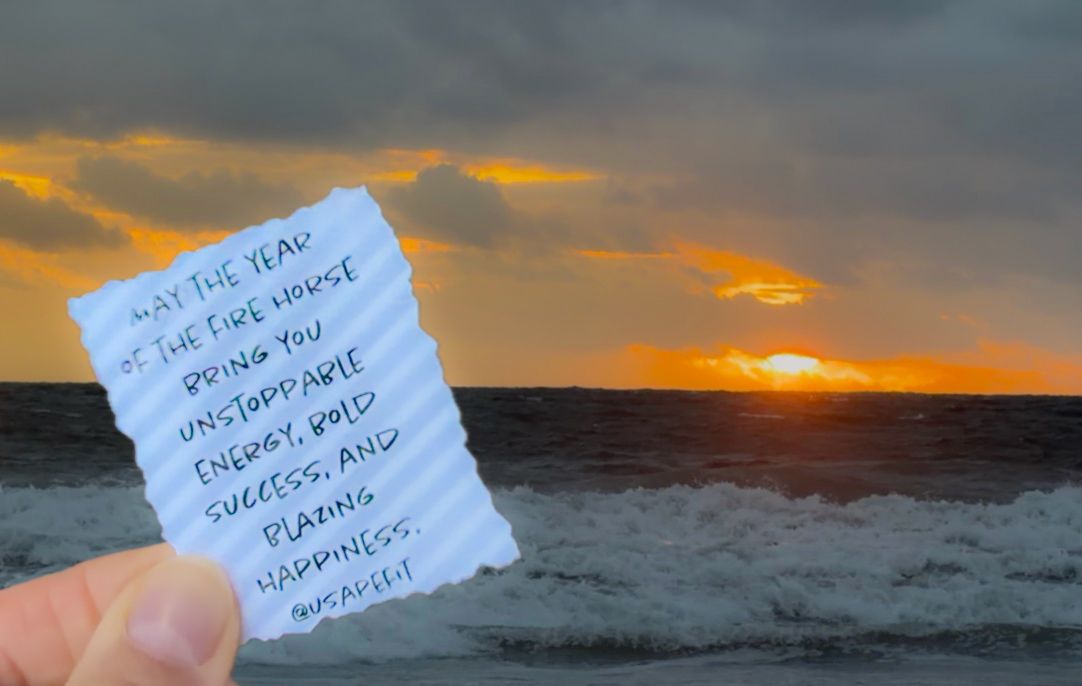 MAY THE YEAR
OF THE FIRE HORSE
BRING YOU
UNSTOPPABLE
ENERGY, BOLD
SUCCESS, AND
BLAZING
HAPPINESS.
@USAPEFIT